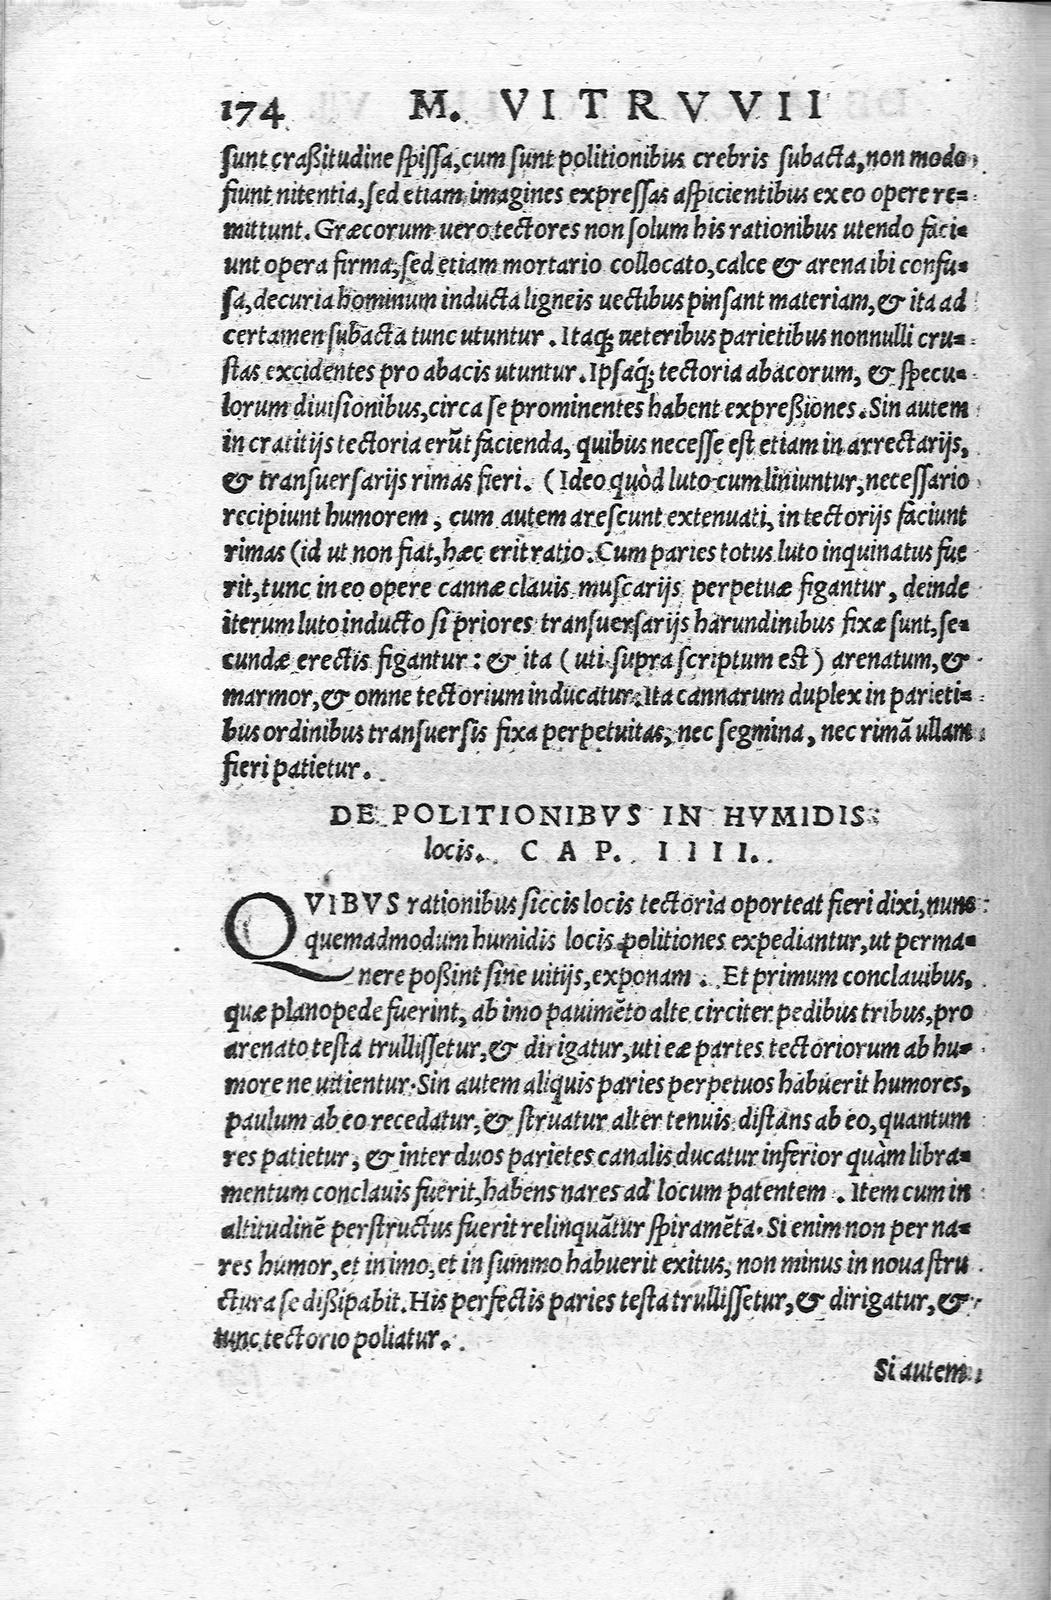 174 M. VITRVVII
sunt craßitudine spissa, cum sunt politionibus crebris subacta, non modo
fiunt nitentia, sed etiam imagines expressas aspicientibus ex eo opere re=
mittunt. Græcorum uero tectores non solum his rationibus utendo faci=
unt opera firma, sed etiam mortario collocato, calce & arena ibi confu=
sa, decuria hominum inducta ligneis uectibus pinsant materiam, & ita ad
certamen subacta tunc utuntur. Itaq; ueteribus parietibus nonnulli cru=
stas excidentes pro abacis utuntur. Ipsáq; tectoria abacorum, & specu=
lorum diuisionibus, circa se prominentes habent expreßiones. Sin autem
in cratitijs tectoria erūt facienda, quibus necesse est etiam in arrectarijs,
& transuersarijs rimas fieri. (Ideo quòd luto cum liniuntur, necessario
recipiunt humorem, cum autem arescunt extenuati, in tectorijs faciunt
rimas (id ut non fiat, hæc erit ratio. Cum paries totus luto inquinatus fue
rit, tunc in eo opere cannæ clauis muscarijs perpetuæ figantur, deinde
iterum luto inducto si priores transuersarijs harundinibus fixæ sunt, se=
cundæ erectis figantur: & ita (uti supra scriptum est) arenatum, &
marmor, & omne tectorium inducatur. Ita cannarum duplex in parieti=
bus ordinibus transuersis fixa perpetuitas, nec segmina, nec rimā ullam
fieri patietur.
DE POLITIONIBVS IN HVMIDIS
locis. CAP. IIII.
QVIBVS rationibus siccis locis tectoria oporteat fieri dixi, nunc
quemadmodum humidis locis politiones expediantur, ut perma=
nere poßint sine uitijs, exponam. Et primum conclauibus,
quæ plano pede fuerint, ab imo pauimēto alte circiter pedibus tribus, pro
arenato testa trullissetur, & dirigatur, uti eæ partes tectoriorum ab hu=
more ne uitientur. Sin autem aliquis paries perpetuos habuerit humores,
paulum ab eo recedatur, & struatur alter tenuis distans ab eo, quantum
res patietur, & inter duos parietes canalis ducatur inferior quàm libra=
mentum conclauis fuerit, habens nares ad locum patentem. Item cum in
altitudinē perstructus fuerit relinquātur spiramēta. Si enim non per na=
res humor, et in imo, et in summo habuerit exitus, non minus in noua stru
ctura se dißipabit. His perfectis paries testa trullissetur, & dirigatur, &
tunc tectorio poliatur.
Si autem